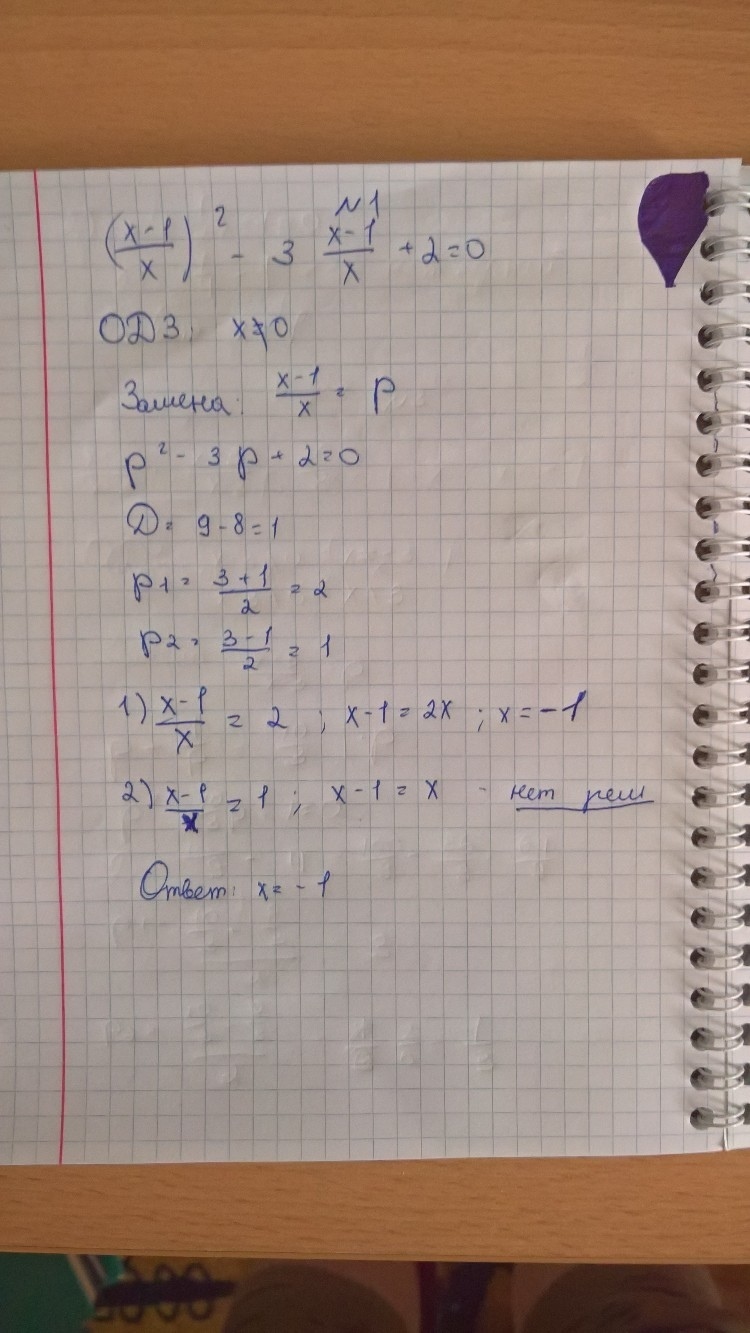 №1
((x-1)/x)² - 3 (x-1)/x + 2 = 0
ОДЗ: x≠0
Замена: (x-1)/x = p
p² - 3p + 2 = 0
D = 9 - 8 = 1
p1 = (3+1)/2 = 2
p2 = (3-1)/2 = 1
1) (x-1)/x = 2 ; x-1 = 2x ; x = -1
2) (x-1)/x = 1 ; x-1 = x - нет реш
Ответ: x = -1